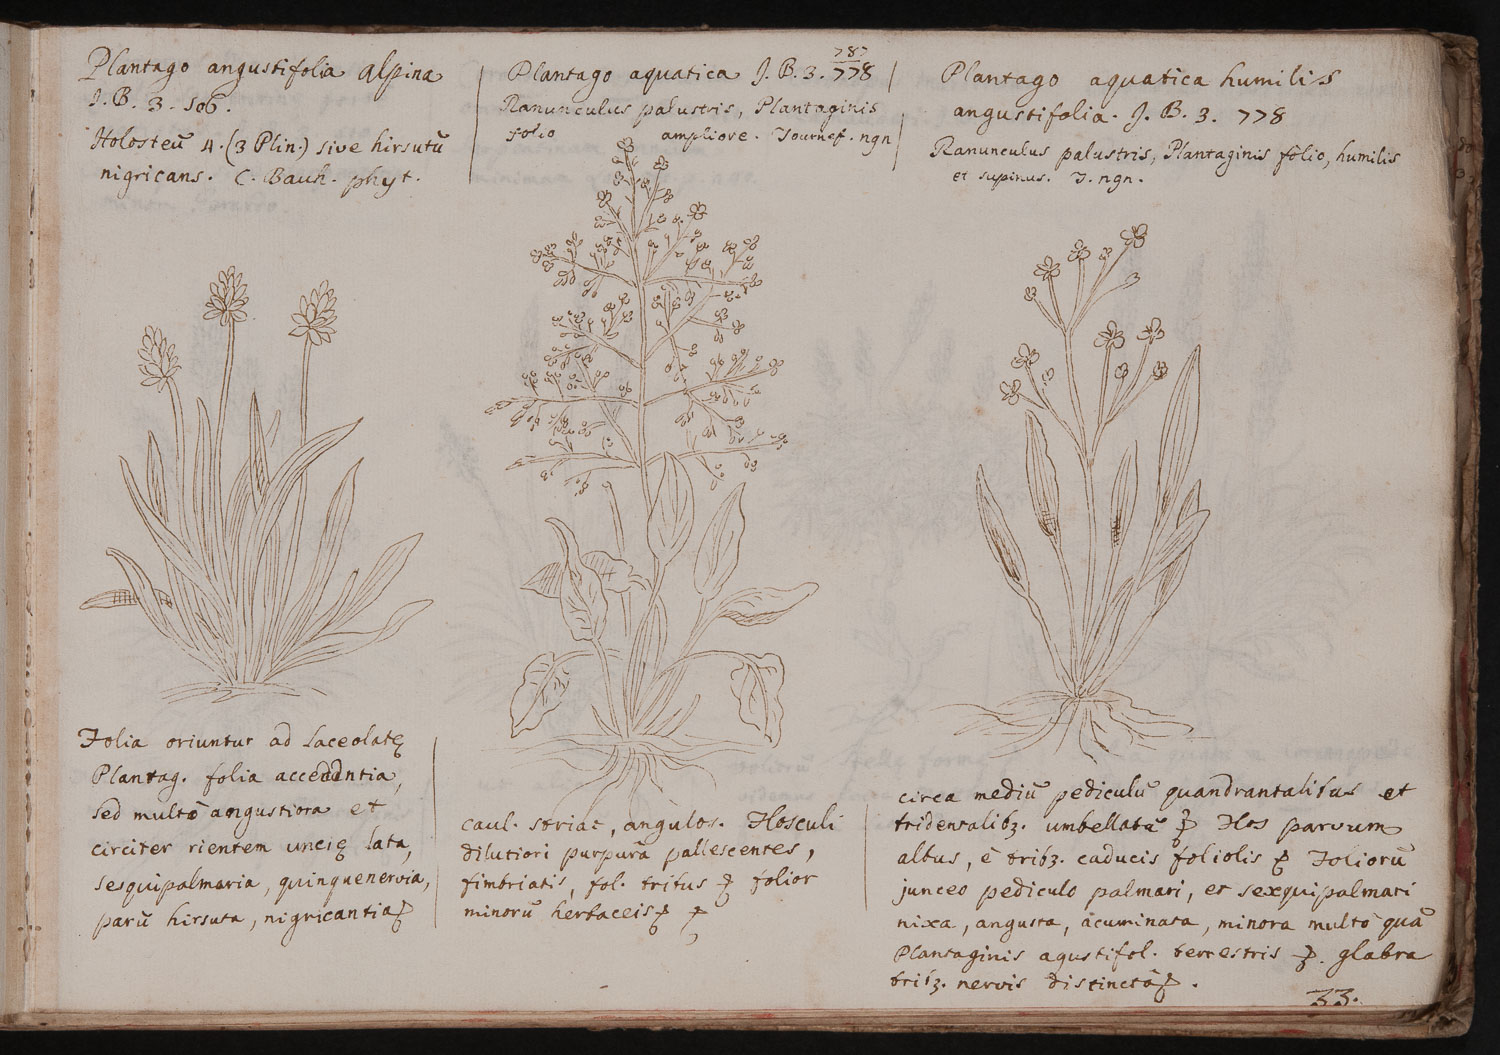 Plantago angustifolia alpina
J. B. 3. 506.
Holosteũ 4. (3 Plin.) sive hirsutũ
nigricans. C. Bauh. phyt.
787
Plantago aquatica J. B. 3. 778
Ranunculus palustris, Plantaginis
folio ampliore. Tournef. ngn
Plantago aquatica humilis
angustifolia. J. B. 3. 778
Ranunculus palustris, Plantaginis folio, humilis
et supinus. T. ngn.
Folia oriuntur ad Laceolatę
Plantag. folia acceddntia,
sed multò angustiora et
circiter rientem uncię lata,
sesquipalmaria, quinquenervia,
parũ hirsuta, nigricantia
caul. striat, angulos. Flosculi
dilutiori purpurâ pallescentes,
fimbriatis, fol. tritus folior
minorũ herbaceis
circa mediũ pediculũ quandrantalibus et
tridentalibꝫ. umbellatâ Flos parvum
albus, è tribꝫ. caducis foliolis Foliorũ
junceo pediculo palmari, et sexquipalmari
nixa, angusta, acuminata, minora multò quã
Plantaginis agustifol. terrestris glabra
tribꝫ. nervis distincta.
33.